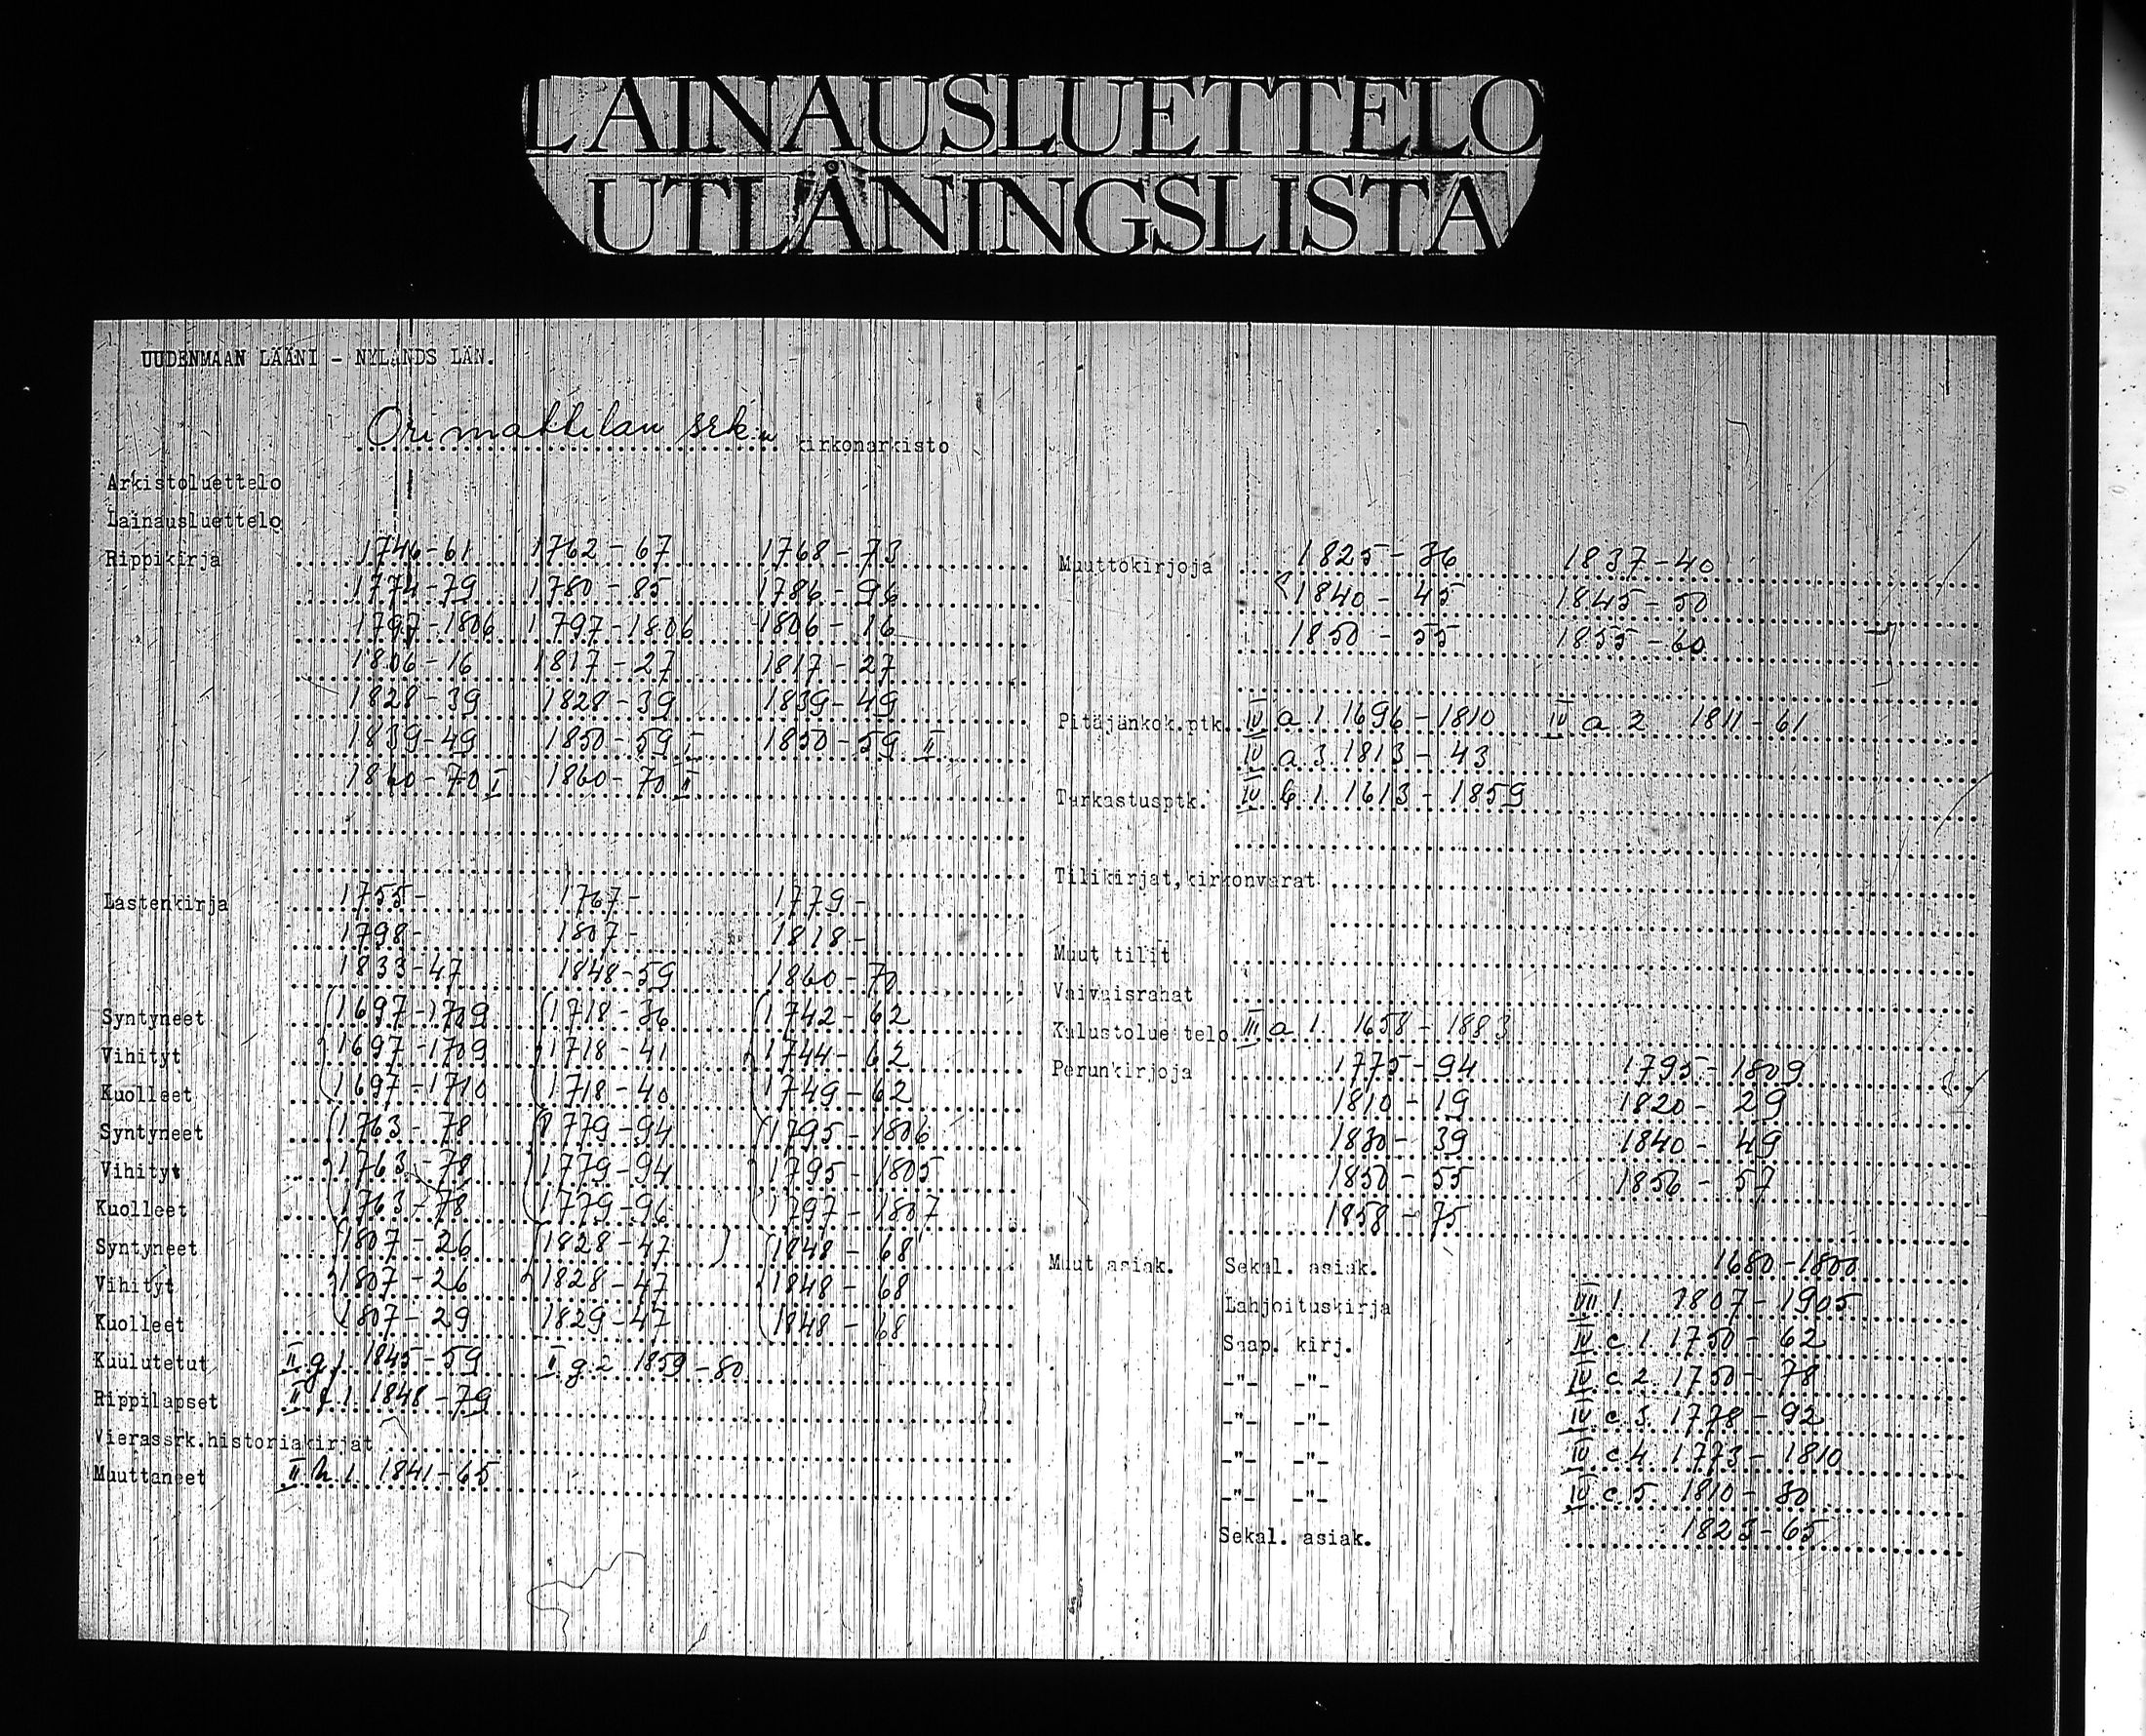 LAINAUSLUETTELO
UTLÅNINGSLISTA
UUDENMAAN LÄÄNI - NYLANDS LÄN.
Orimattilan srk:n kirkonarkisto
Arkistoluettelo
Lainausluettelo
Rippikirja 1746-61 1762-67 1768-73
1774-79 1780-85 1786-96
1797-1806 1797-1806 1806-16
1806-16 1817-27 1817-27
1828-39 1828-39 1839-49
1839-49 1850-59 I 1850-59 II
1860-70 I 1860-70 II
Lastenkirja 1755- 1767- 1779-
1798- 1807- 1818-
1833-47 1848-59 1860-70
Syntyneet 1697-1709 1718-36 1742-62
Vihityt 1697-1709 1718-41 1744-62
Kuolleet 1697-1710 1718-40 1749-62
Syntyneet 1763-78 1779-94 1795-1806
Vihityt 1763-78 1779-94 1795-1805
Kuolleet 1763-78 1779-96 1797-1807
Syntyneet 1807-26 1828-47 1848-68
Vihityt 1807-26 1828-47 1848-68
Kuolleet 1807-29 1829-47 1848-68
Kuulutetut II g 1 1845-59 II g 2 1859-80
Rippilapset II f 1 1848-79
Vierassrk.historiakirjat
Muuttaneet II h 1 1841-65
Muuttokirjoja 1825-36 1837-40
1840-45 1845-50
1850-55 1855-60
Pitäjänkok.ptk. IV a 1 1696-1810 IV a 2 1811-61
IV a 3 1813-43
Tarkastusptk. IV b 1 1613-1859
Tilikirjat,kirkonvarat
Muut tilit
Vaivaisrahat
Kalustoluettelo III a 1 1658-1883
Perunkirjoja 1775-94 1795-1809
1810-19 1820-29
1830-39 1840-49
1850-55 1856-57
1858-75
Muut asiak. Sekal. asiak. 1680-1800
Lahjoituskirja VIII 1 1807-1905
Saap. kirj. IV c 1 1750-62
-"- -"- IV c 2 1750-78
-"- -"- IV c 3 1778-92
-"- -"- IV c 4 1773-1810
-"- -"- IV c 5 1810-30
Sekal. asiak. 1823-65